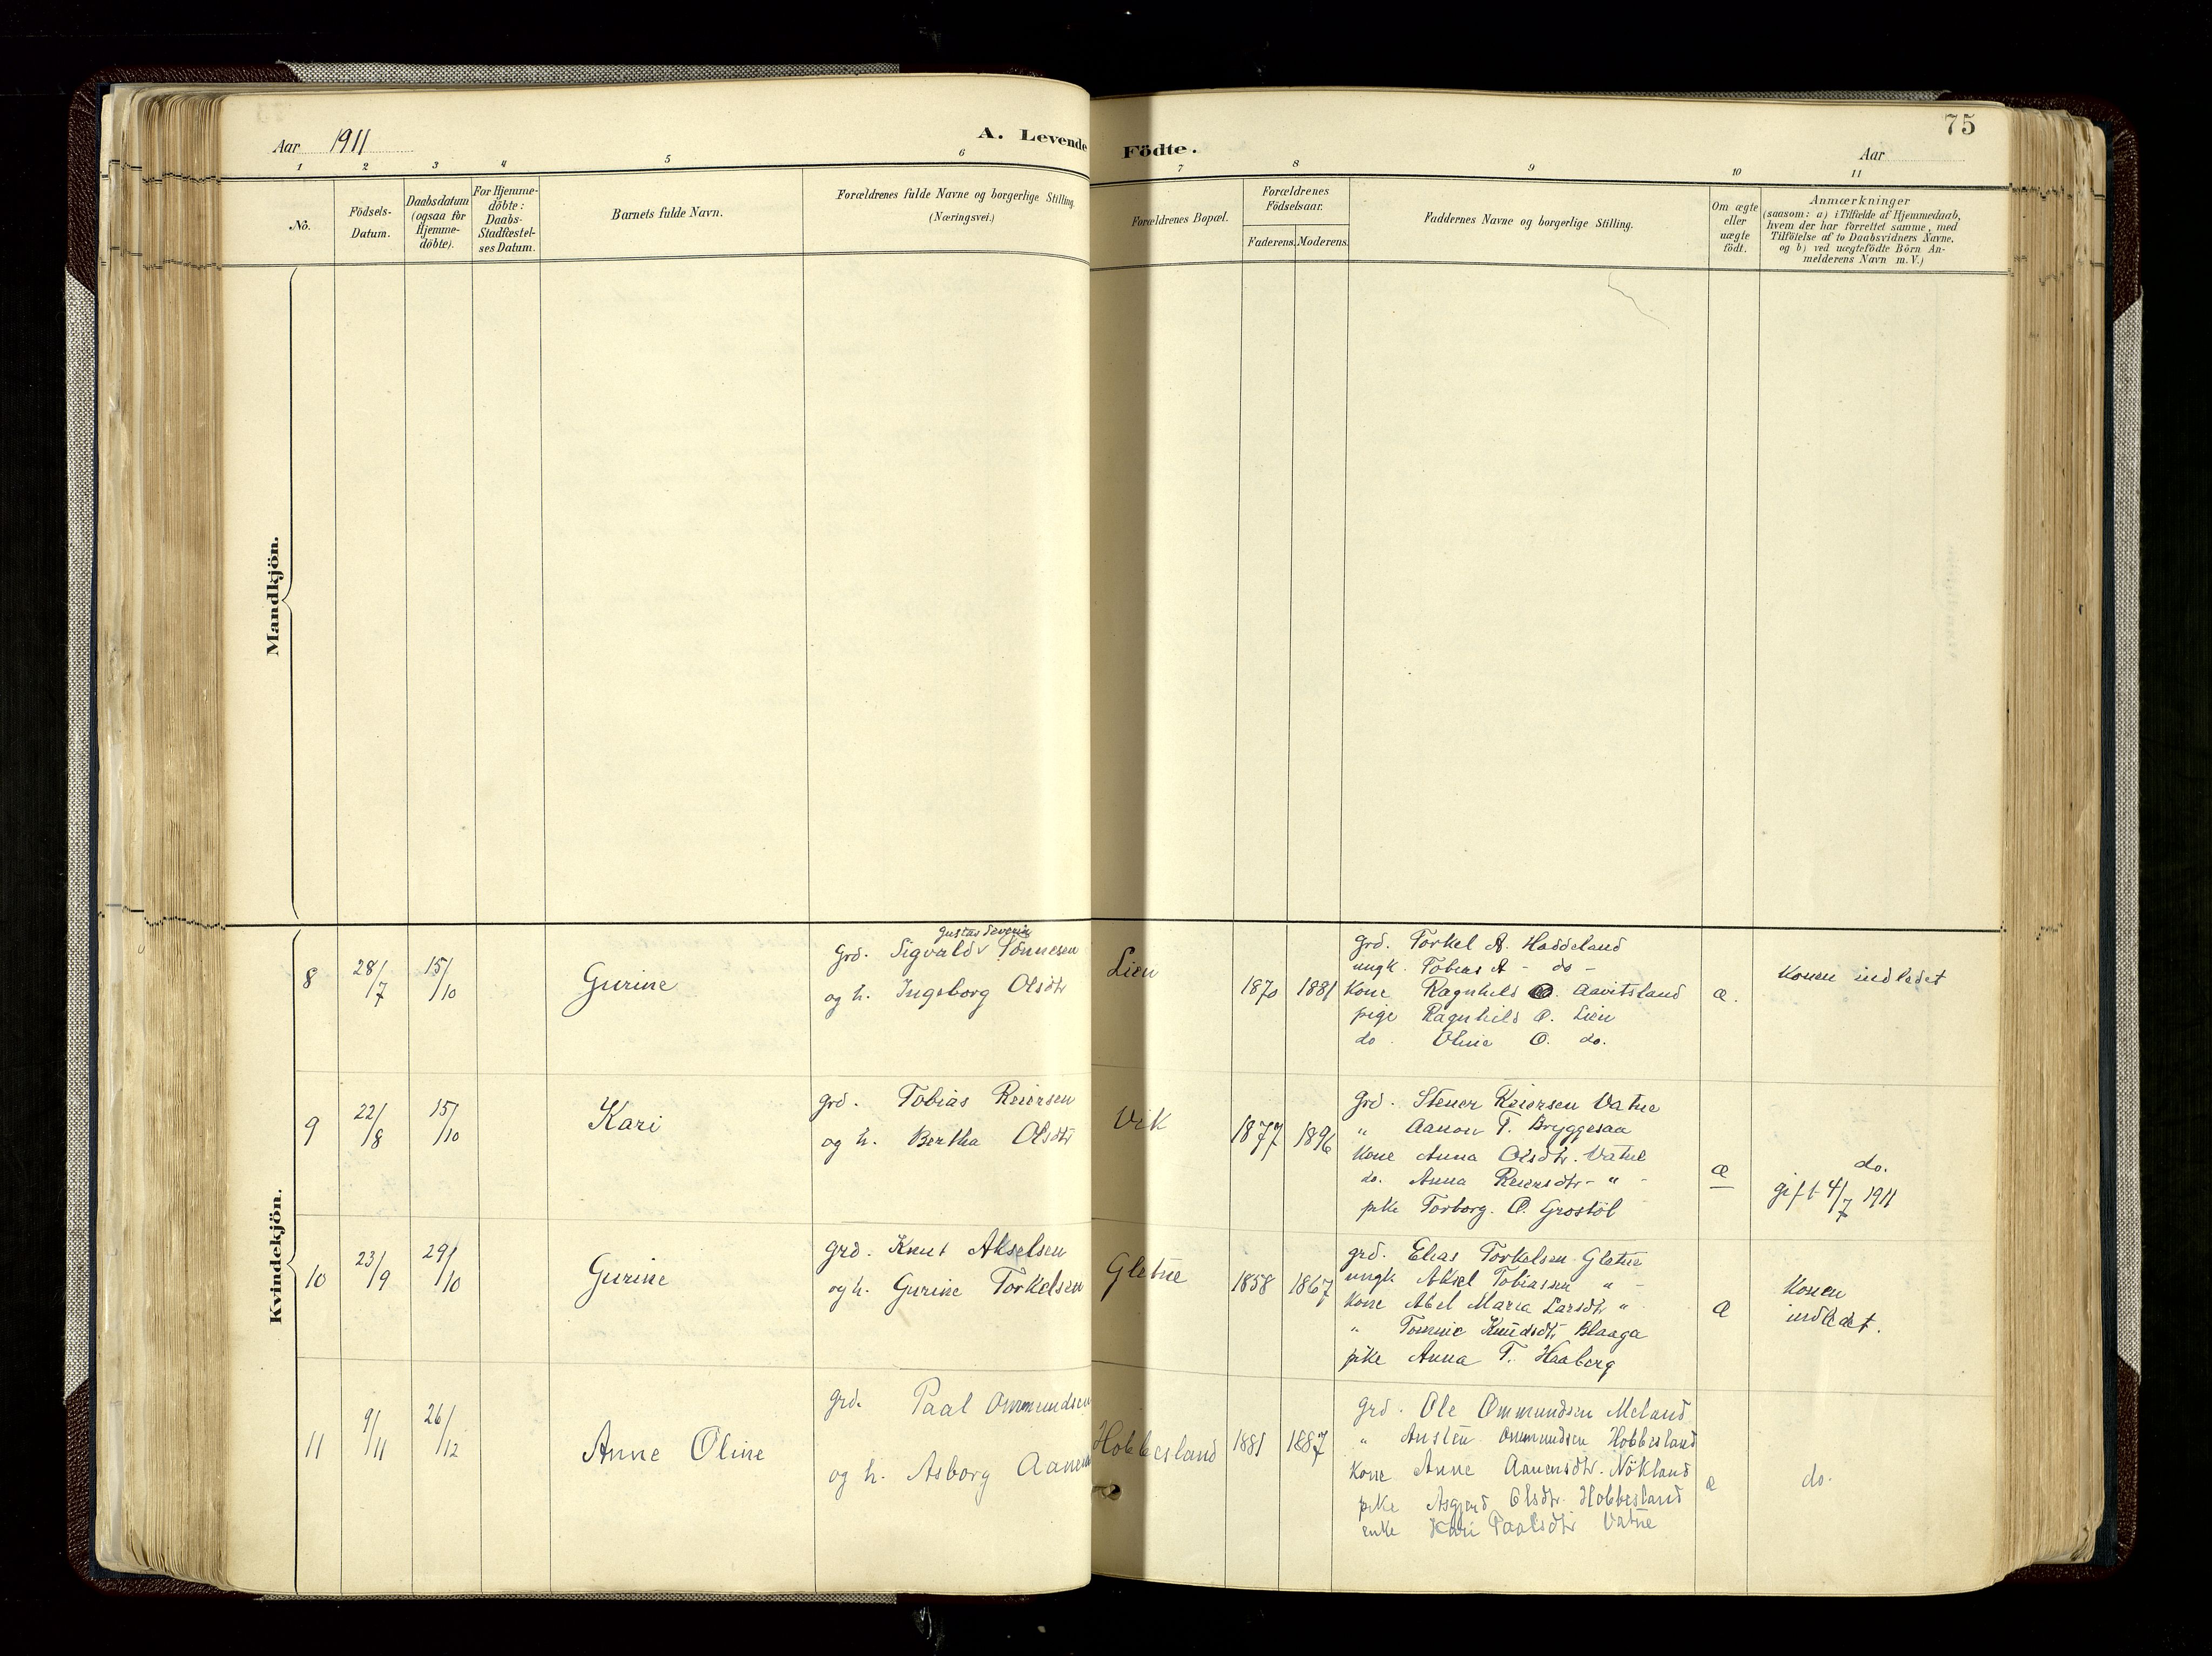 75
Aar 1911
A. Levende Födte.
Aar
1 2 3 4 5 6 7 8 9 10 11
No.
Födsels-
Datum.
Daabsdatum
(ogsaa for
Hjemme-
döbte).
For Hjemme-
döbte:
Daabs-
Stadfæstel-
ses Datum.
Barnets fulde Navn.
Forældrenes fulde Navne og borgerlige Stilling.
(Næringsvei.)
Forældrenes Bopæl.
Forældrenes
Födselsaar.
Faderens. Moderens.
Faddernes Navne og borgerlige Stilling.
Om ægte
eller
uægte
födt.
Anmærkninger
(saasom: a) i Tilfælde af Hjemmedaab,
hvem der har forrettet samme, med
Tilföielse af to Daabsvidners Navne.
og b) ved uægtefödte Börn An-
melderens Navn m. V.)
Mandkjön.
Kvindekjön.
8
28/7
15/10
Gurine
Gustav Severin
Grd. Sigvald v Tönnesen
og h. Ingeborg Olsdtr
Lien
1870
1881
Grd. Torkel A. Haddeland
ungk. Tobias A - do -
Kone Ragnhild O. Aavitsland
pige Ragnhild O. Lien
do Oline O. do.
æ.
Konen indledet
9
22/8
15/10
Kari
grd. Tobias Reiersen
og h. Bertha Olsdtr
Vik
1877
1896
Grd. Stener Reiersen Vatne
" Aanon T. Bryggesaa
Kone Anna Olsdtr. Vatne
do. Anna Reiersdtr - " -
pike Torborg. O. Grostöl
æ
do.
gift 4/7 1911
10
23/9
29/10
Gurine
grd. Knut Akselsen
og h. Gurine Torkelsen
Gletne
1858
1867
grd. Elias Torkelsen Gletne
ungk Aksel Tobiassen " -
Kone Abel Maria Larsdtr "
" Tomine Knudsdtr Blaaga
pike Anna T. Haaberg
æ
Konen
indledet.
11
9/11
26/12
Anne Oline
grd. Paal Ommundsen
og h. Asborg Aanens
Hobbesland
1881
1887
Grd. Ole Ommundsen Meland
" Austen Ommundsen Hobbesland
Kone Anne Aanensdtr. Nökland
pike Asgjerd Olsdtr. Hobbesland
enke Kari Paalsdtr Vatne
æ
do.